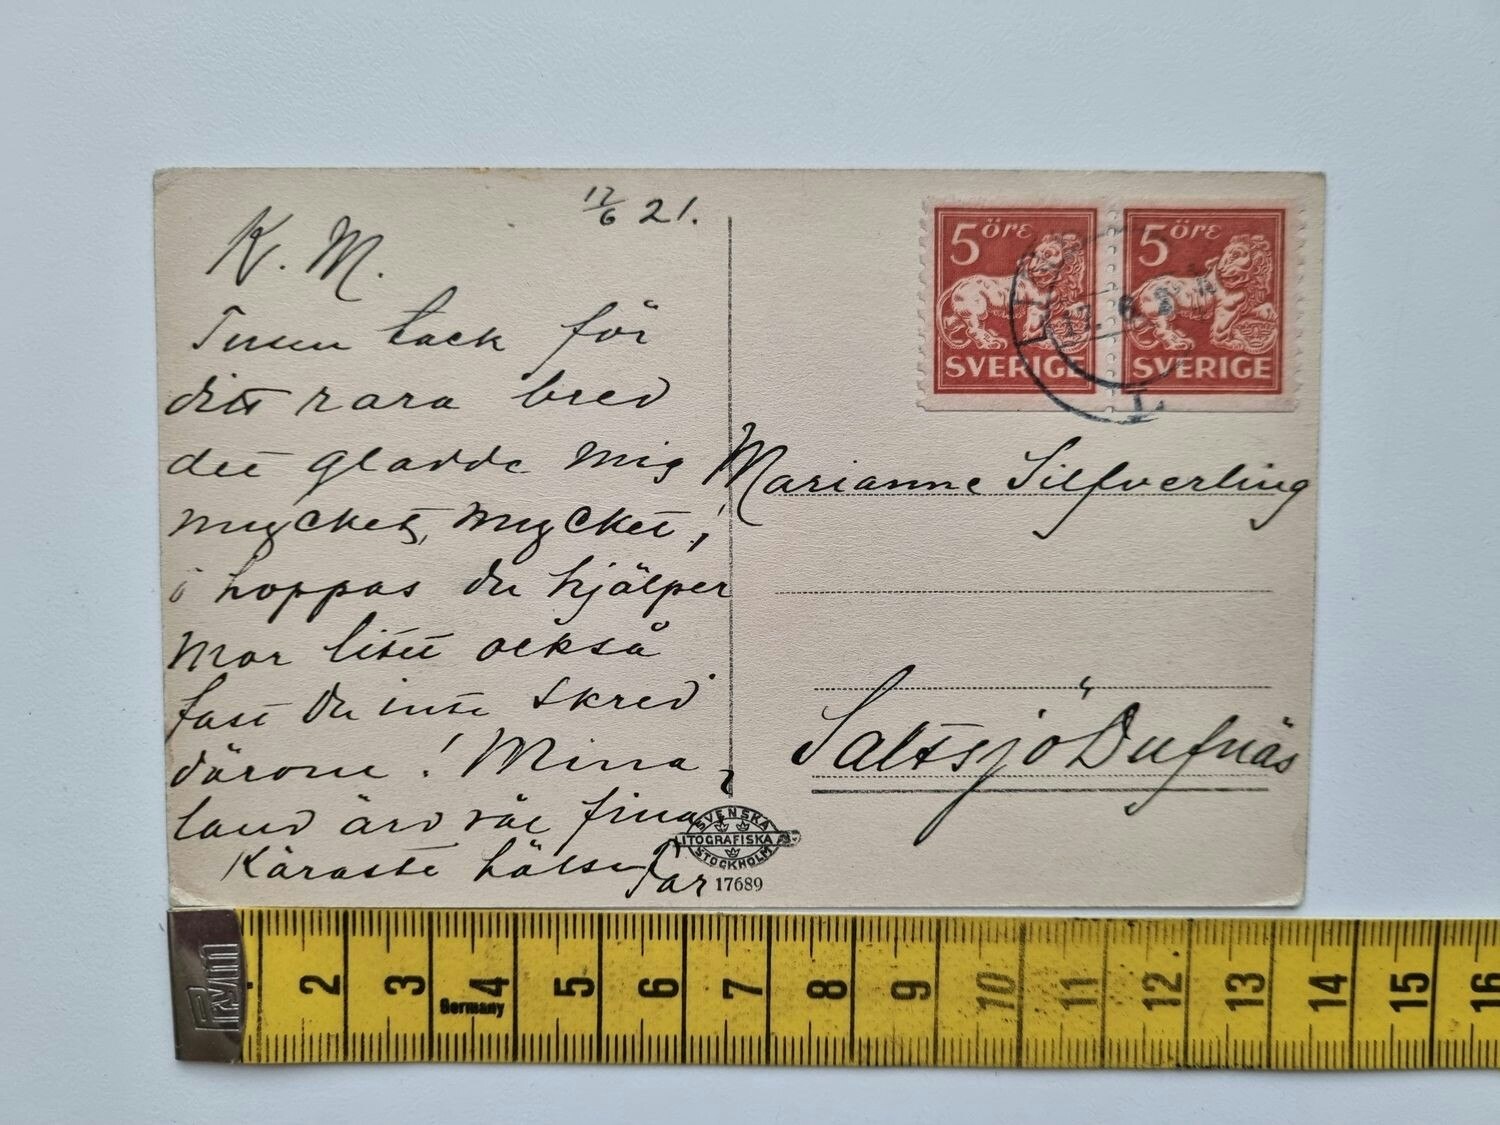 17/6 21.
K. M.
Tusen tack för
ditt rara brev
det gladde mig
mycket, mycket,!
hoppas du hjälper
Mor litet också
fast Du inte skrev
därom! Mina
land äro väl fina
Käraste hälsn Far
5 öre
SVERIGE
5 öre
SVERIGE
17. 6. 2
L
Marianne Silfverling
Saltsjö Dufnäs
SVENSKA
LITOGRAFISKA
STOCKHOLM
17689
Prym
2 3 4 5 6 7 8 9 10 11 12 13 14 15 16
Germany